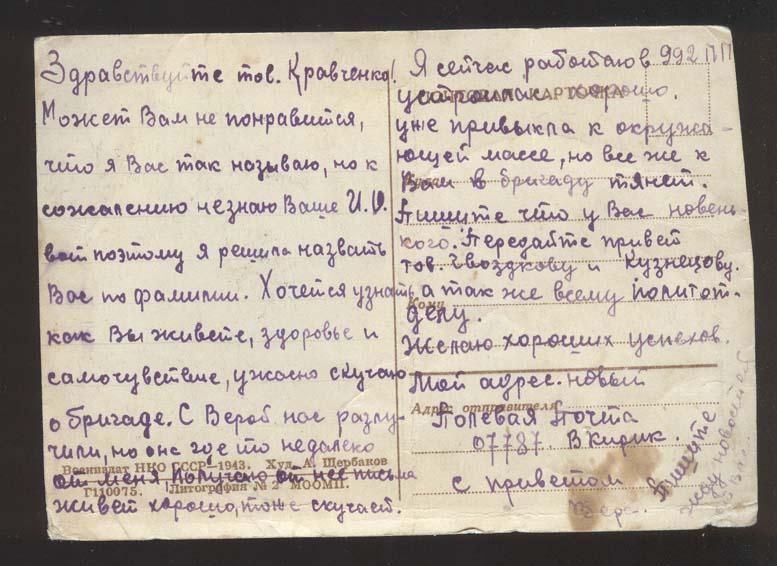 Здравствуйте тов. Кравченко!
Может Вам не понравится,
что я Вас так называю, но к
сожалению незнаю Ваше И.О.
вот поэтому я решила назвать
Вас по фамилии. Хочется узнать
как Вы живете, здоровье и
самочувствие, ужасно скучаю
о бригаде. С Верой нас разлу-
чили, но она где то недалеко
от меня получаю от нее письма
живет хорошо, тоже скучает.
Воениздат НКО СССР—1943. Худ. А. Щербаков
Г110075. Литография № 2 МООМП.
Я сейчас работаю в 992 ПП
устроилась хорошо.
ПОЧТОВАЯ КАРТОЧКА
уже привыкла к окружа-
ющей массе, но все же к
Вам в бригаду тянет.
Куда
Пишите что у Вас новень-
кого. Передайте привет
тов. Гвоздкову и Кузнецову.
Кому
а так же всему политот-
делу.
Желаю хороших успехов.
Мой адрес новый
Адрес отправителя
Полевая Почта
07787. В Кирик.
с приветом
Вера.
Пишите
жду новостей
о Вас.